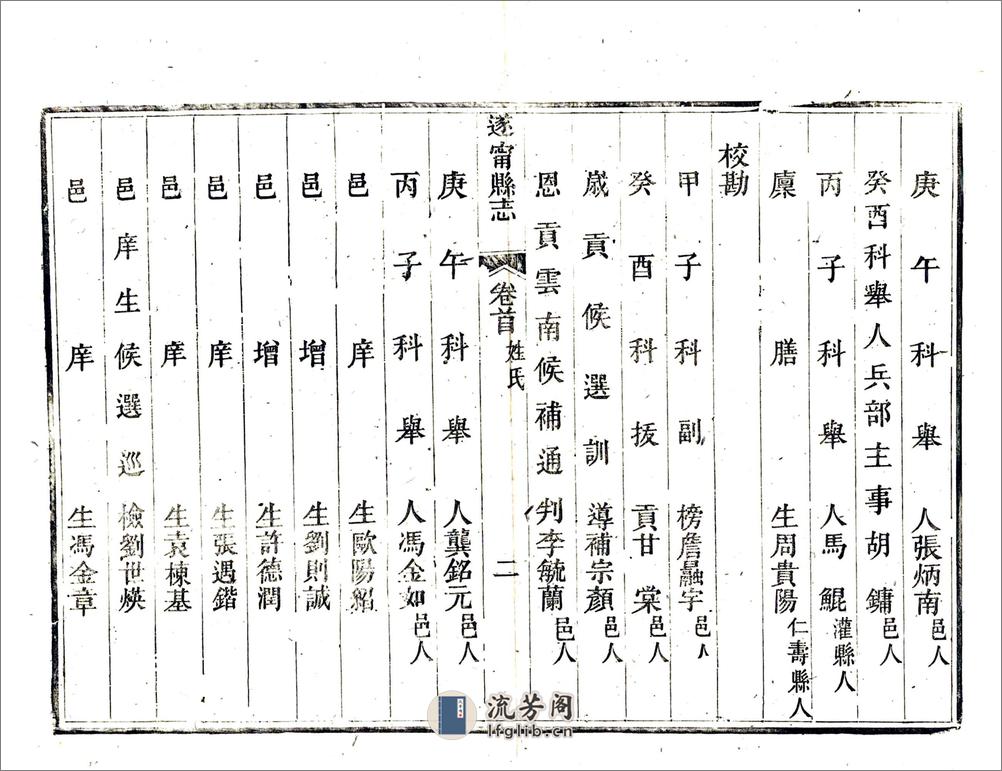 庚午科舉人張炳南邑人
癸酉科舉人兵部主事胡鏞邑人
丙子科舉人馬鯤灌縣人
廩膳生周貴陽仁壽縣人
校勘
甲子科副榜詹䶬宇邑人
癸酉科拔貢甘棠邑人
歲貢候選訓導補宗顏邑人
恩貢雲南候補通判李毓蘭邑人
遂甯縣志 卷首 姓氏 二
庚午科舉人龔銘元邑人
丙子科舉人馮金如邑人
邑庠生歐陽紹
邑增生劉則誠
邑增生許德潤
邑庠生張遇鍇
邑庠生袁棟基
邑庠生候選巡檢劉世煐
邑庠生馮金章
流芳阁
lfglib.cn